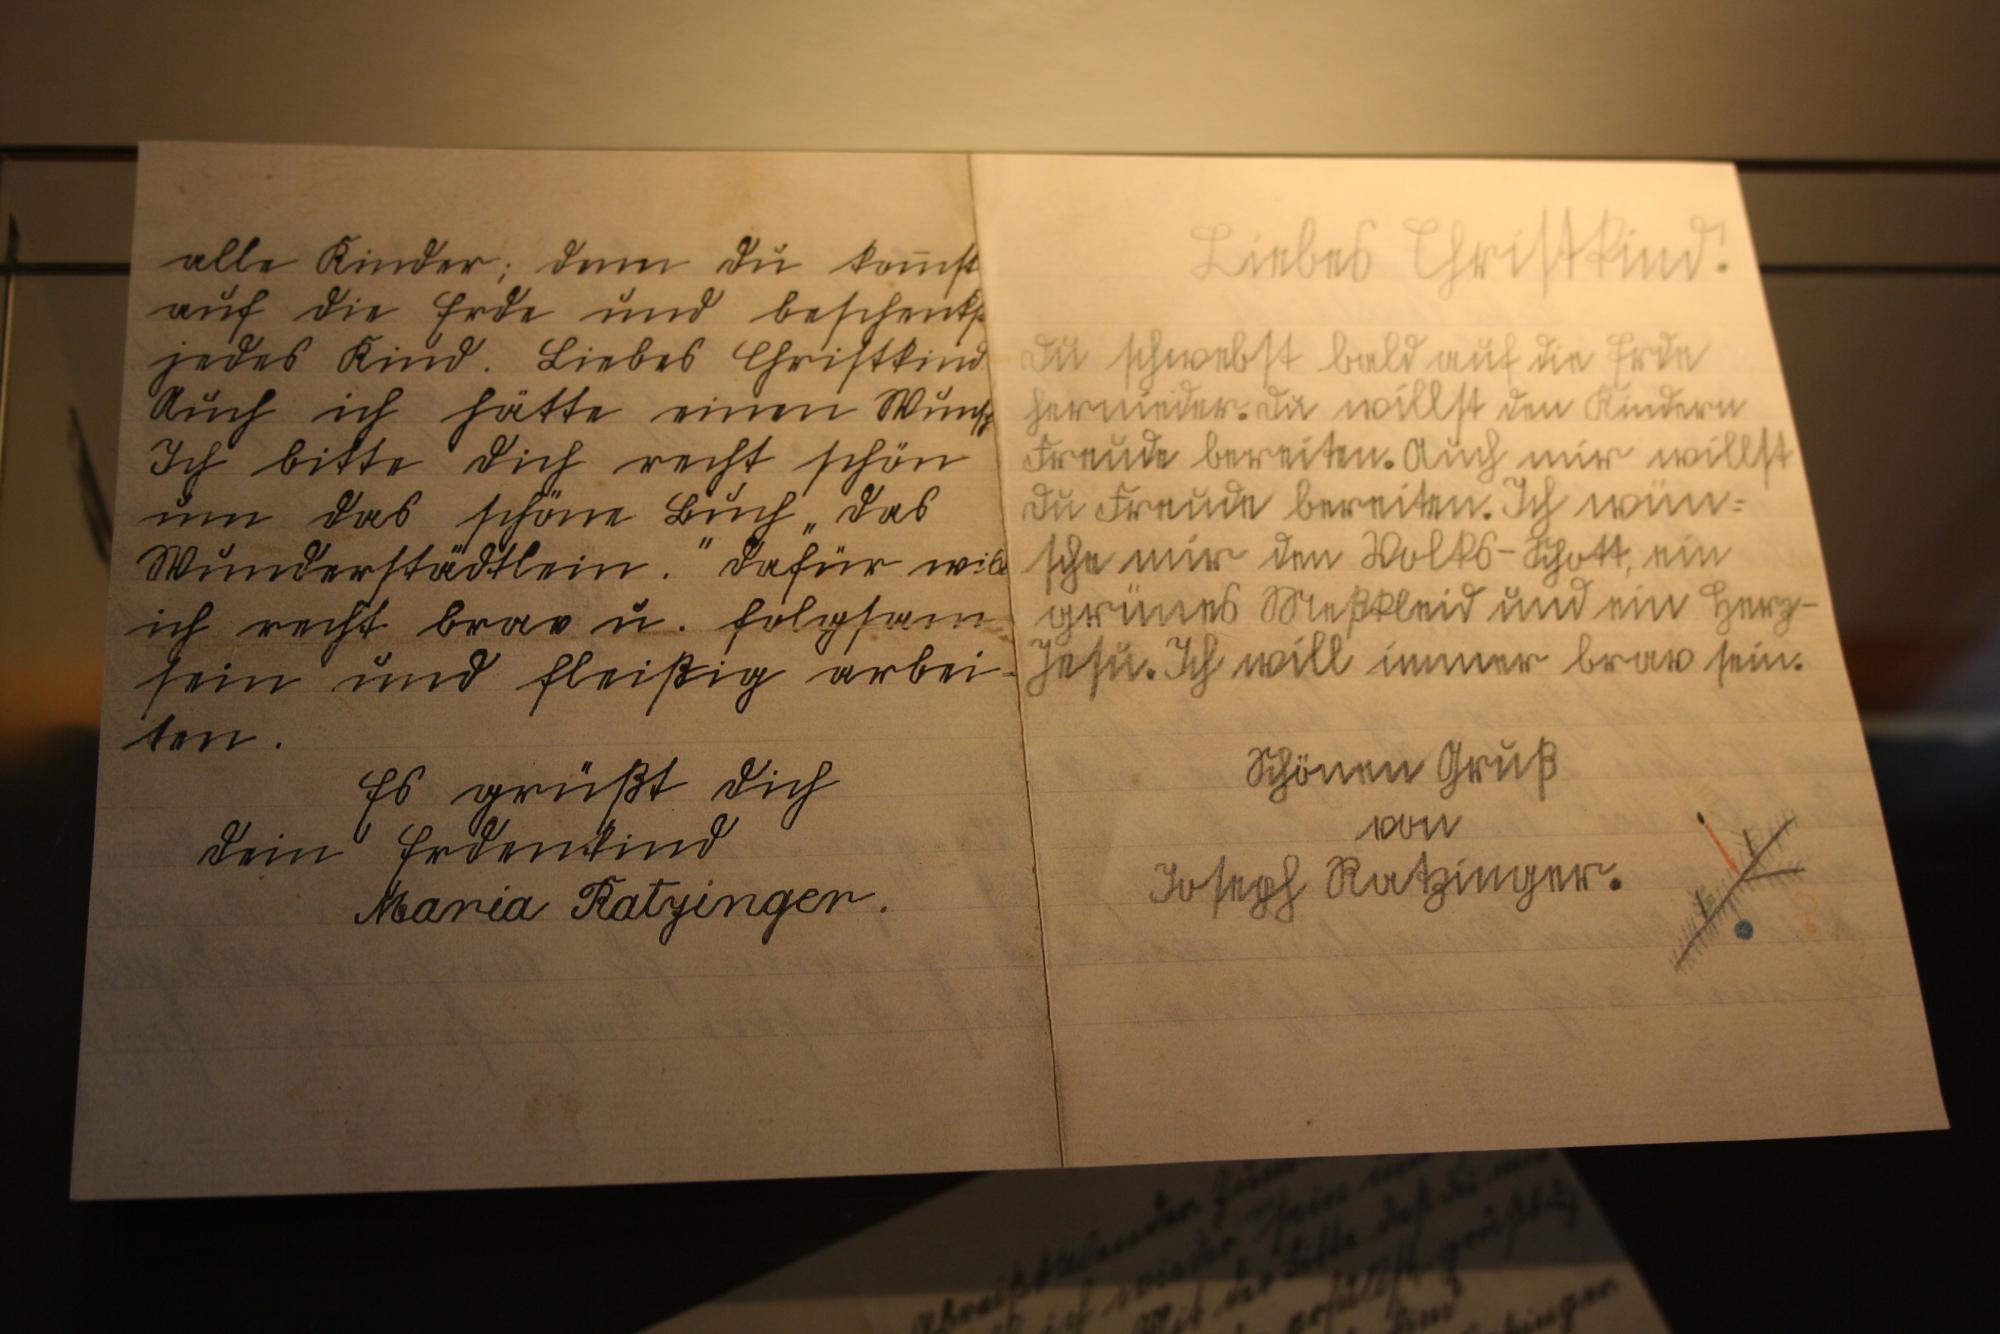 alle Kinder; denn du kom̄st
auf die Erde und beschenkst
jedes Kind. Liebes Christkind
Auch ich hätte einen Wunsch
Ich bitte dich recht schön
um das schöne Buch „das
Wunderstädtlein." dafür will
ich recht brav u. folgsam
sein und fleißig arbei-
ten.
Es grüßt dich
dein Erdenkind
Maria Ratzinger.
Liebes Christkind!
Du schwebst bald auf die Erde
hernieder. Du willst den Kindern
Freude bereiten. Auch mir willst
du Freude bereiten. Ich wün=
sche mir den Volks-Schott, ein
grünes Meßkleid und ein Herz-
Jesu. Ich will immer brav sein.
Schönen Gruß
von
Joseph Ratzinger.